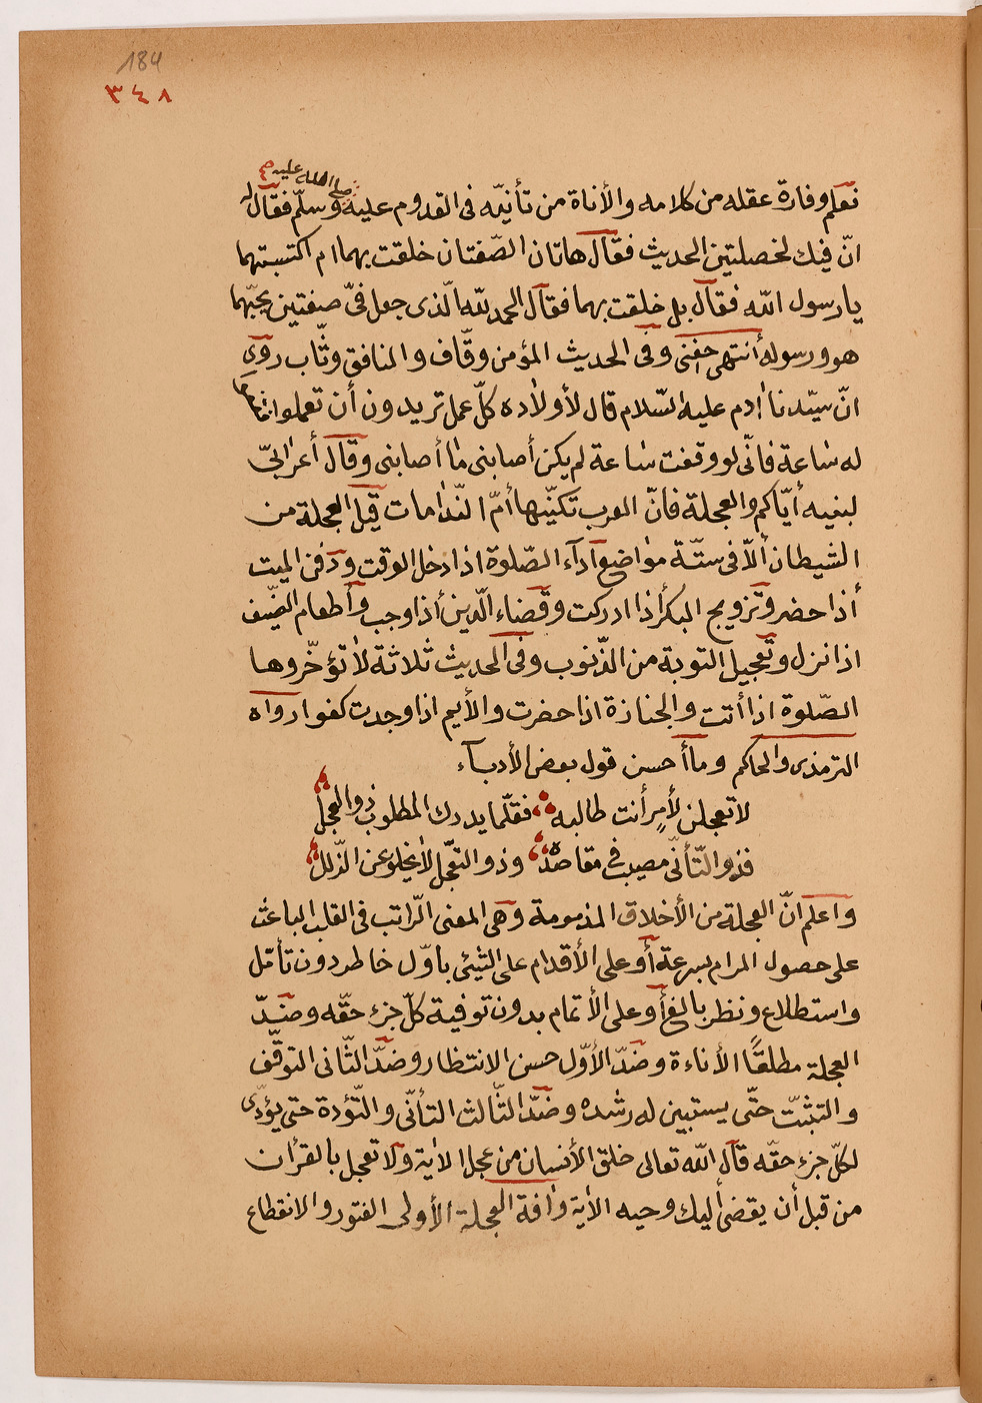 184
٣٤٨
فعلم وفارة عقله من كلامه والأناة من تأنيّه فى القدوم عليه صلى الله عليه وسلّم فقال له
انّ فيك لخصلتين الحديث فقال هاتان الصّفتان خلقت بهما ام اكتسبتهما
يا رسول الله فقال بل خلقت بهما فقال الحمد لله الّذى جعل فىّ صفتين يحبّهما
هو ورسوله أنتهى حفنى وفى الحديث المؤمن وقّاف والمنافق وثّاب روى
انّ سيّدنا اٰدم عليه السّلام قال لأولاده كلّ عمل تريدون أن تعملوا
له ساعة فانّى لو وقفت ساعة لم يكن أصابنى ما أصابنى وقال أعرابىّ
لبنيه أيّاكم والعجلة فانّ العرب تكنّيها أمّ النّدامات قيل العجلة من
الشيطان ألاّ فى ستّة مواضع أدآء الصّلوة اذا دخل الوقت ودفن الميت
أذا حضر وتزويج البكر أذا ادركت وقضاء الّدين أذا وجب وأطعام الضّيف
اذا نزل وتعجيل التوبة من الذّنوب وفى الحديث ثلاثة لا تؤخّروها
الصّلوة اذا أتت والجنازة اذا حضرت والأيم اذا وجدت كفوا رواه
الترمذى والحاكم وما أحسن قول بعض الأدبآء
لا تعجلن لأمرٍ أنت طالبه فقلّما يدرك المطلوب ذو العجل
فذو التّأنّى مصيب فى مقاصده وذو التعّجل لا يخلو عن الزّلل
واعلم انّ العجلة من الأخلاق المذمومة وهى المعنى الرّاتب فى القلب الباعث
على حصول المرام بسرعة أو على الأقدام على الشيئ باوّل خاطر دون تأمّل
واستطلاع ونظر بالغ أو على الأتمام بدون توفية كلّ جزء حقّه وضدّ
العجلة مطلقًا الأناءة وضدّ الأوّل حسن الانتظار وضدّ الثّانى التوقّف
والتثبّت حتّى يستبين له رشده وضدّ الثّالث التأنّى والتّؤدة حتى يؤدّى
لكلّ جزء حقّه قال الله تعالى خلق الأنسان من عجل الاٰية ولا تعجل بالقراٰن
من قبل أن يقضى أليك وحيه الاٰية واٰفة العجلة الأولى الفتور والانقطاع